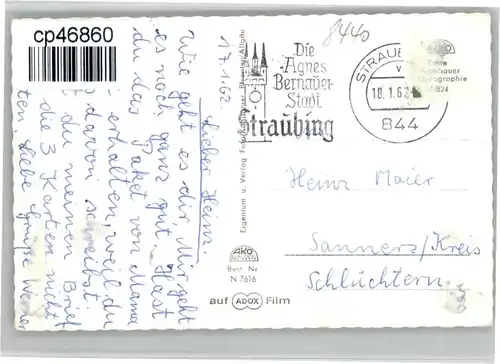 cp46860
8440
17.1.62
Lieber Heinz,
Wie geht es dir. Mir geht
es noch ganz gut. Hast
du das Paket von Mama
erhalten, weil du
davon schreibst
du meinen Brief
3 Karten nicht
Liebe Grüße Werner
Eigentum u. Verlag
AKO
Best. Nr
N 7616
auf ADOX Film
Die
Agnes
Bernauer-
Stadt
Straubing
18.1.62
844
AKO
Heinz Maier
Sannerz/Kreis
Schlüchtern